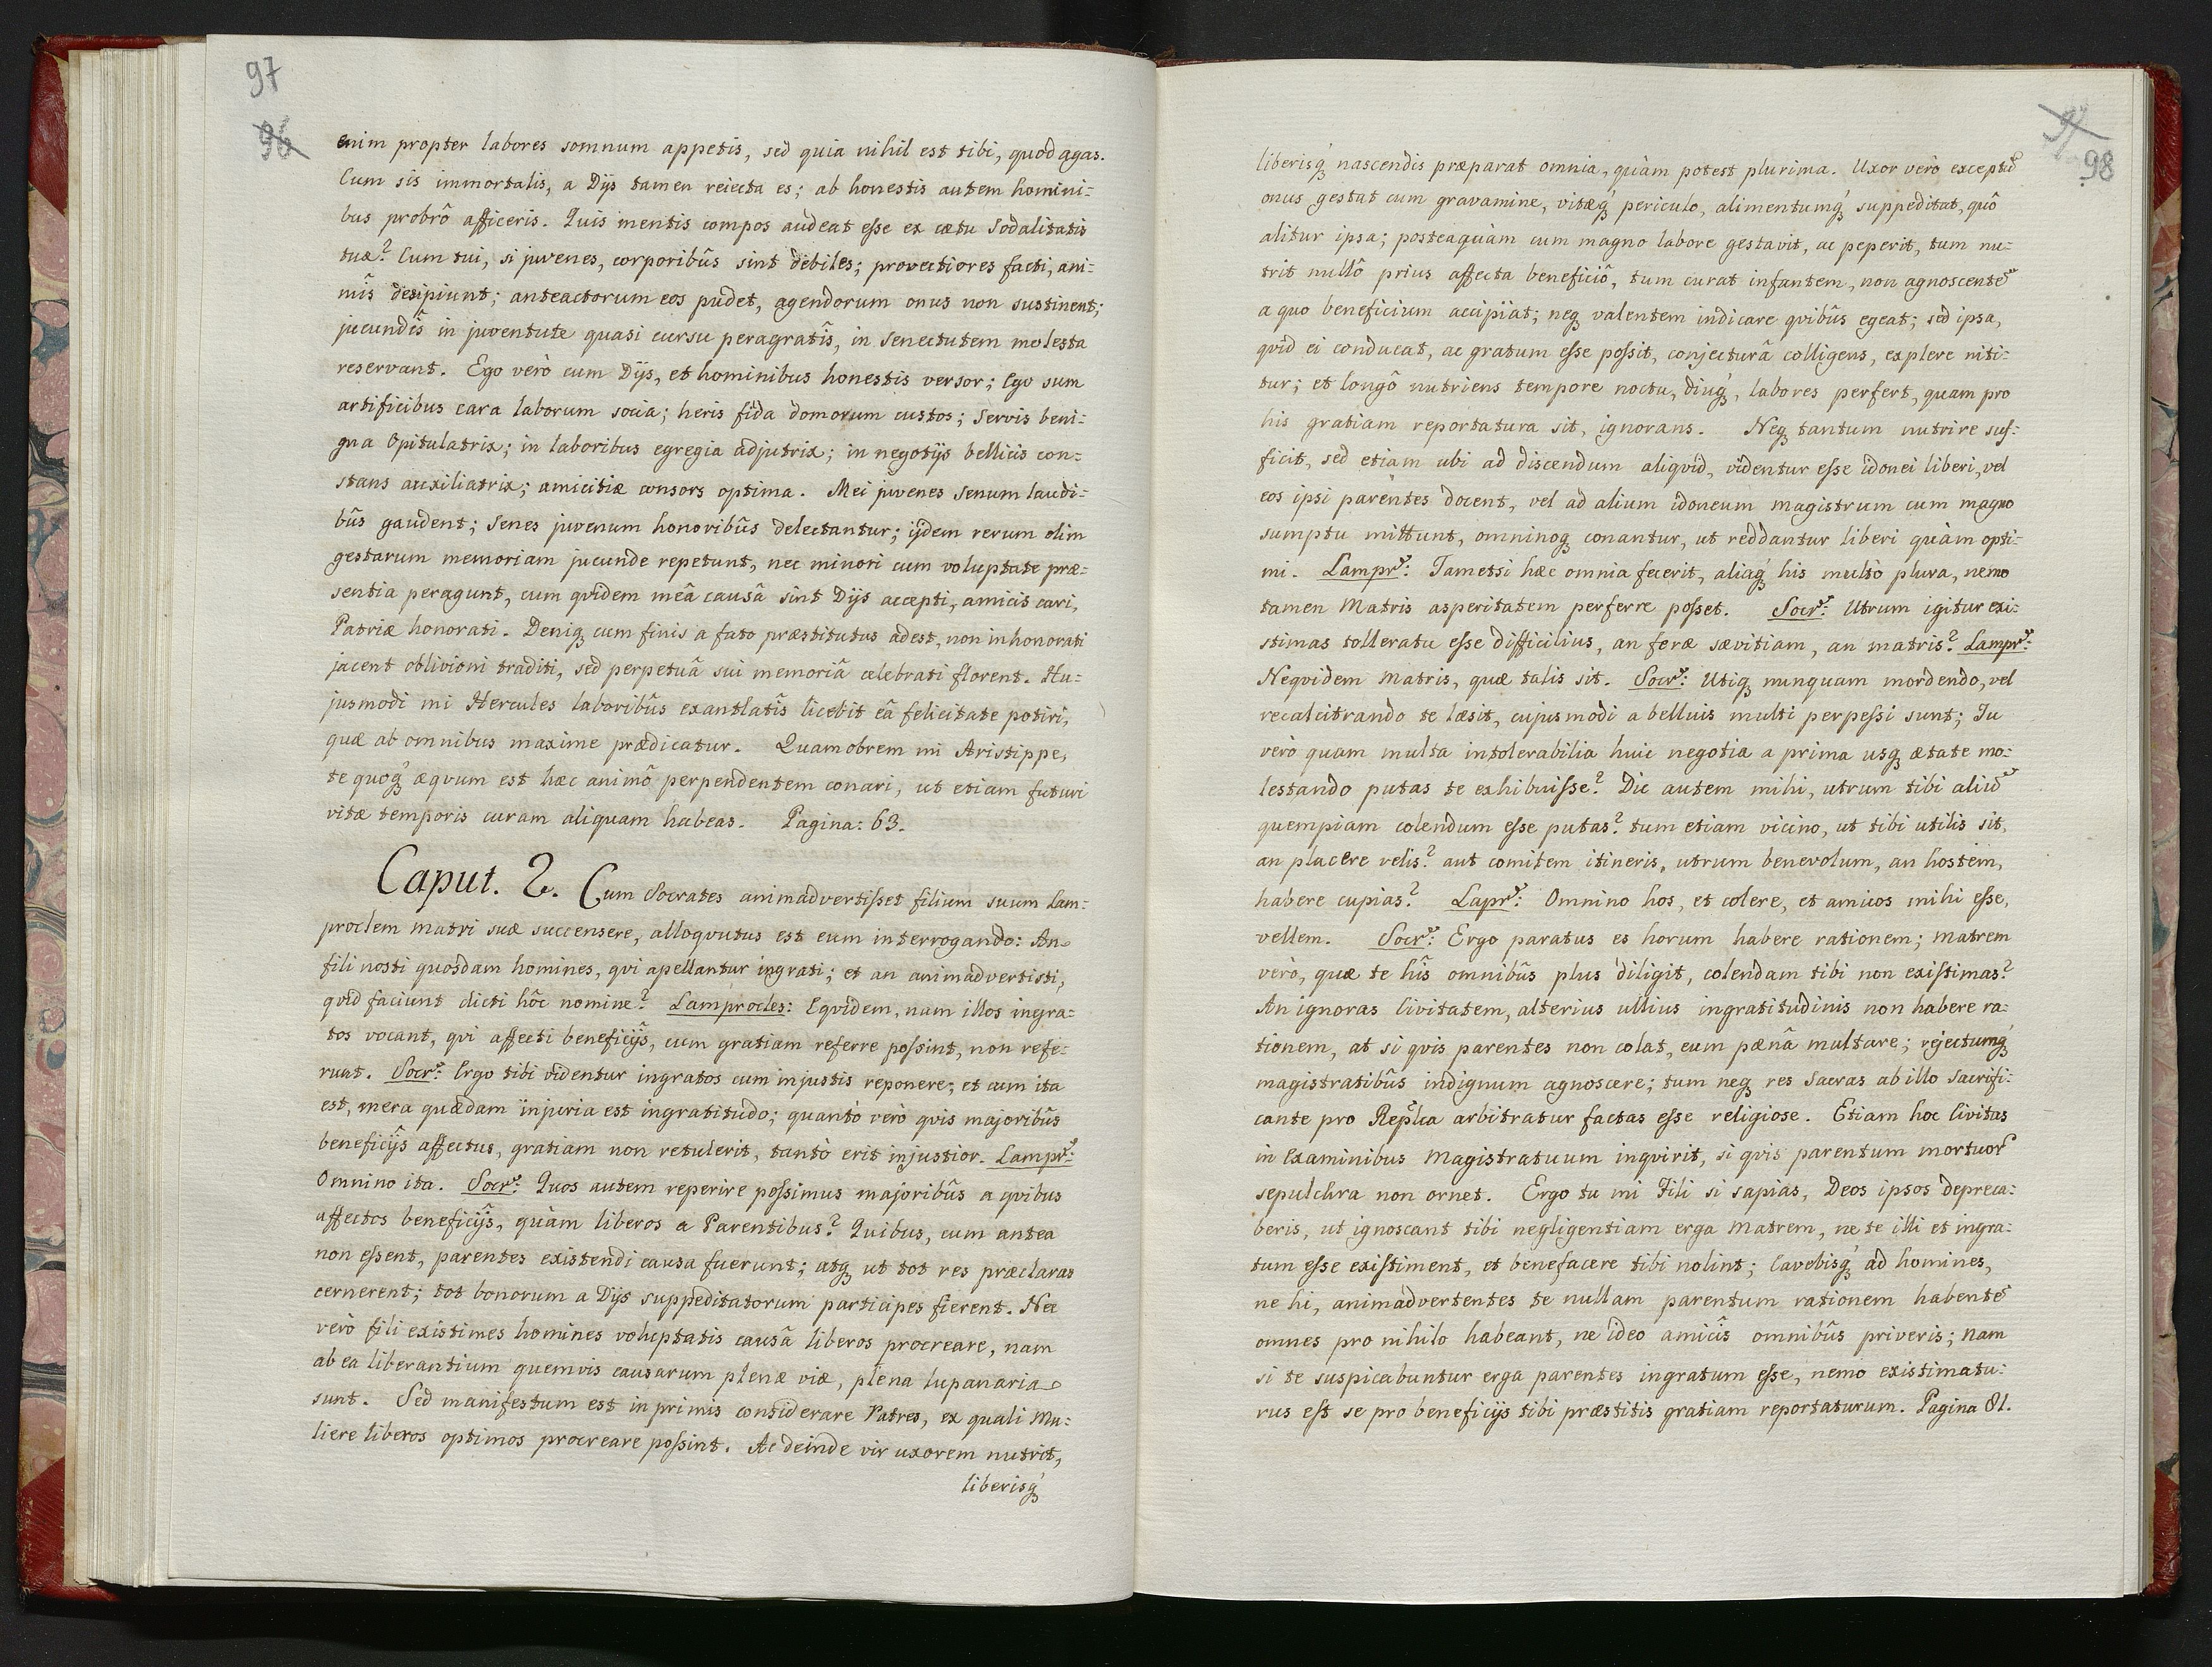 97
96
enim propter labores somnum appetis, sed quia nihil est tibi, quod agas.
Cum sis immortalis, a Dijs tamen reiecta es; ab honestis autem homini=
bus probrô afficeris. Quis mentis compos audeat esse ex cætu Sodalitatis
tuæ? Cum tui, si juvenes, corporibûs sint debiles; provectiores facti, ani=
mîs desipiunt; anteactorum eos pudet, agendorum onus non sustinent;
jucundîs in juventute quasi cursu peragratîs, in Senectutem molesta
reservant. Ego verò cum Dijs, et hominibus honestis versor; Ego sum
artificibus cara laborum socia; heris fida domorum custos; Servis beni=
gna Opitulatrix; in laboribus egregia adjutrix; in negotijs bellicis con=
stans auxiliatrix; amicitiæ consors optima. Mei juvenes Senum laudi=
bûs gaudent; Senes juvenum honoribûs delectantur; ijdem rerum olim
gestarum memoriam jucunde repetunt, nec minori cum voluptate præ=
sentia peragunt, cum qvidem meâ causâ sint Dijs accepti, amicis cari,
Patriæ honorati. Deniq cum finis a fato præstitutus adest, non inhonorati
jacent oblivioni traditi, sed perpetuâ sui memoriâ celebrati florent. Hu=
jusmodi mi Hercules laboribûs exantlatîs licebit eâ felicitate potiri,
quæ ab omnibus maxime prædicatur. Quamobrem mi Aristippe,
te quoq́ æqvum est hæc animô perpendentem conari, ut etiam futuri
vitæ temporis curam aliquam habeas. Pagina: 63.
Caput. 2. Cum Socrates animadvertisset filium suum Lam=
proclem matri suæ succensere, alloqvutus est eum interrogando: An
fili nosti quosdam homines, qvi apellantur ingrati; et an animadvertisti,
qvid faciunt dicti hôc nomine? Lamprocles: Eqvidem, nam illos ingra=
tos vocant, qvi affecti beneficijs, cum gratiam referre possint, non refe=
runt. Socr: Ergo tibi videntur ingratos cum injustis reponere; et cum ita
est, mera quædam injuria est ingratitudo; quantò verò qvis majoribûs
beneficijs affectus, gratiam non retulerit, tantò erit injustior. Lampr:
Omnino ita. Socr: Quos autem reperire possimus majoribûs a qvibus
affectos beneficijs, quàm liberos a Parentibus? Quibus, cum antea
non essent, parentes existendi causa fuerunt; atq ut tot res præclaras
cernerent; tot bonorum a Dijs suppeditatorum participes fierent. Nec
verò fili existimes homines voluptatis causâ liberos procreare, nam
ab ea liberantium quemvis causarum plenæ viæ, plena lupanaria
sunt. Sed manifestum est inprimis considerare Patres, ex quali Mu=
liere liberos optimos procreare possint. Ac deinde vir uxorem nutrit,
liberisq́
98
liberisq́ nascendis præparat omnia, quàm potest plurima. Uxor verò exceptũ
onus gestat cum gravamine, vitæq́ periculo, alimentumq́ suppeditat, quô
alitur ipsa; posteaquàm cum magno labore gestavit, ac peperit, tum nu=
trit nullô prius affecta beneficiô, tum curat infantem, non agnoscentẽ
a quo beneficium accipiat; neq valentem indicare qvibûs egeat; sed ipsa,
qvid ei conducat, ac gratum esse possit, conjecturâ colligens, explere niti=
tur; et longô nutriens tempore noctu, diuq́, labores perfert, quam pro
his gratiam reportatura sit, ignorans. Neq tantum nutrire suf=
ficit, sed etiam ubi ad discendum aliqvid, videntur esse idonei liberi, vel
eos ipsi parentes docent, vel ad alium idoneum magistrum cum magno
sumptu mittunt, omninoq conantur, ut reddantur liberi quàm opti=
mi. Lampr: Tametsi hæc omnia fecerit, aliaq́ his multò plura, nemo
tamen Matris asperitatem perferre posset. Socr: Utrum igitur exi=
stimas tolleratu esse difficilius, an feræ sævitiam, an matris? Lampr:
Neqvidem Matris, quæ talis sit. Socr: Utiq nunquam mordendo, vel
recalcitrando te læsit, cujusmodi a belluis multi perpessi sunt; Tu
verò quam multa intolerabilia huic negotia a prima usq ætate mo=
lestando putas te exhibuisse? Dic autem mihi, utrum tibi aliũ
quempiam colendum esse putas? tum etiam vicino, ut tibi utilis sit,
an placere velis? aut comitem itineris, utrum benevolum, an hostem,
habere cupias? Lapr: Omnino hos, et colere, et amicos mihi esse,
vellem. Socr: Ergo paratus es horum habere rationem; Matrem
verò, quæ te hîs omnibûs plus diligit, colendam tibi non existimas?
An ignoras Civitatem, alterius ullius ingratitudinis non habere ra=
tionem, at si qvis parentes non colat, eum pænâ multare; rejectumq́
magistratibûs indignum agnoscere; tum neq res Sacras ab illo Sacrifi=
cante pro Replca arbitratur factas esse religiose. Etiam hoc Civitas
in Examinibus Magistratuum inqvirit, si qvis parentum mortuor
sepulchra non ornet. Ergo tu mi Fili si sapias, Deos ipsos depreca=
beris, ut ignoscant tibi negligentiam erga Matrem, ne te illi et ingra=
tum esse existiment, et benefacere tibi nolint; Cavebisq́ ad homines,
ne hi, animadvertentes te nullam parentum rationem habentẽ
omnes pro nihilo habeant, ne ideo amicîs omnibûs priveris; Nam
si te suspicabuntur erga parentes ingratum esse, nemo existimatu=
rus est se pro beneficijs tibi præstitis gratiam reportaturum. Pagina 81.